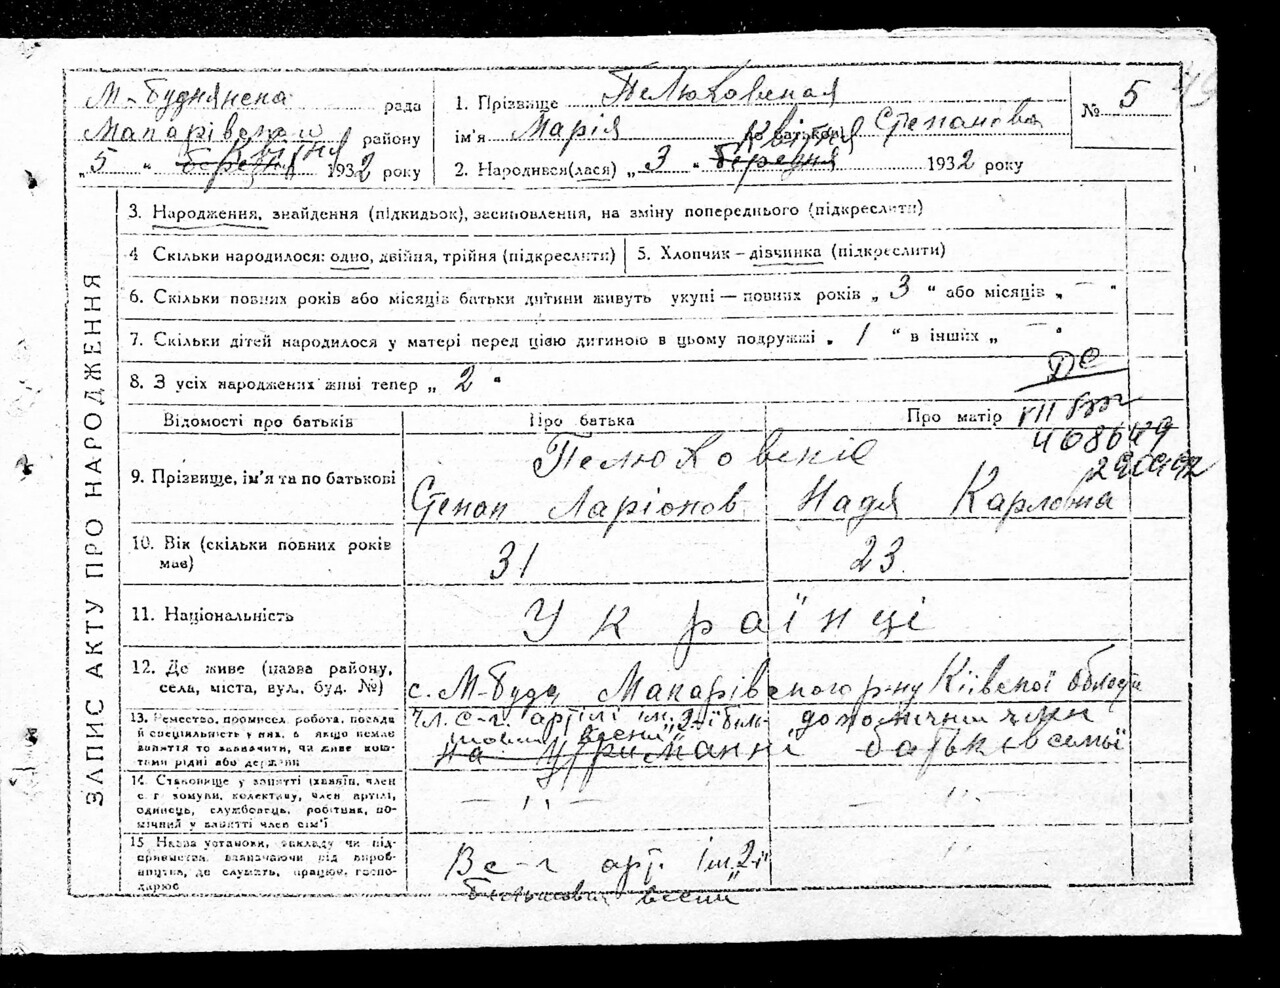 М-Буднянска рада
Макарівського району
„5 “ березня квітня 1932 року
1. Прізвище Пелюховская
ім'я Марія по батькові Степановна
2. Народився(лася) „ 3 “ березня квітня 1932 року
№ 5
ЗАПИС АКТУ ПРО НАРОДЖЕННЯ
3. Народження, знайдення (підкидьок), засиновлення, на зміну попереднього (підкреслити)
4 Скільки народилося: одно, двійня, трійня (підкреслити)
5. Хлопчик – дівчинка (підкреслити)
6. Скільки повних років або місяців батьки дитини живуть укупі — повних років „ 3 “ або місяців „ — “
7. Скільки дітей народилося у матері перед цією дитиною в цьому подружжі „ 1 “ в інших „ — “
8. З усіх народжених живі тепер „ 2 “
Відомості про батьків
Про батька
Про матір
VII
408649
9. Прізвище, ім'я та по батькові
Пелюховскіе
Степан Ларіонов
Надя Карловна
10. Вік (скільки повних років має)
31
23
11. Національність
Українці
12. Де живе (назва району, села, міста, вул., буд. №)
с. М-Буда Макарівського р-ну Київскої області
13. Ремество, промисел, робота, посада й спеціяльність у них, а якщо немає заняття то зазначити, чи живе коштами рідні або держави
чл. с-г. артілі ім. „2-ї біль-
шовиц. весни“
допоміжний член
на утриманні батьків семьї
14. Становище у занятті (хазяїн, член с.-г. комуни, колективу, член артілі, одинець, службовець, робітник, помічний у занятті член сім'ї
— " —
" —
15 Назва установи, закладу чи підприємства, зазначаючи рід виробництва, де служать, працює, господарює
В с-г арт. ім. „2-ї
більшовиц. весни
"